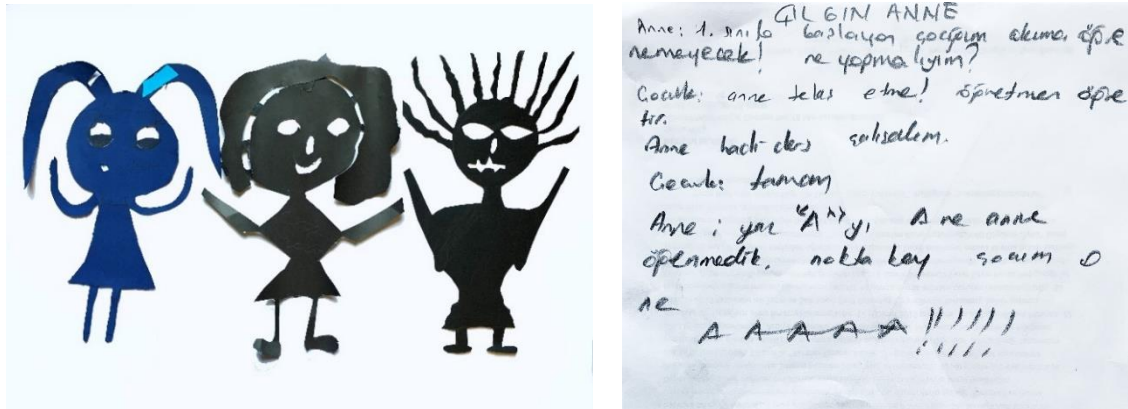 ÇILGIN ANNE
Anne: 1. sınıfa başlayan çocuğum okuma öğre
nemeyecek! ne yapmalıyım?
Çocuk: anne telaş etme! öğretmen öğre
tir.
Anne hadi ders çalışalım.
Çocuk: tamam
Anne: yaz "A" yı, A ne anne
öğrenmedik. nokta koy
ne
A A A A A !!!!!!